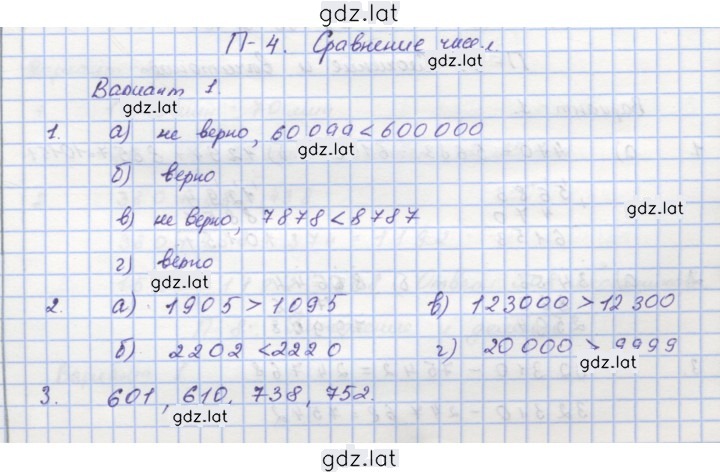 gdz.lat
П-4. Сравнение чисел
gdz.lat
Вариант 1.
gdz.lat
1. а) не верно, 60 099 < 600 000
gdz.lat
б) верно
gdz.lat
в) не верно, 7878 < 8787
г) верно
gdz.lat
2. а) 1905 > 1095 в) 123000 > 12 300
б) 2202 < 2220 г) 20 000 > 9999
gdz.lat
3. 601, 610, 738, 752.
gdz.lat
gdz.lat